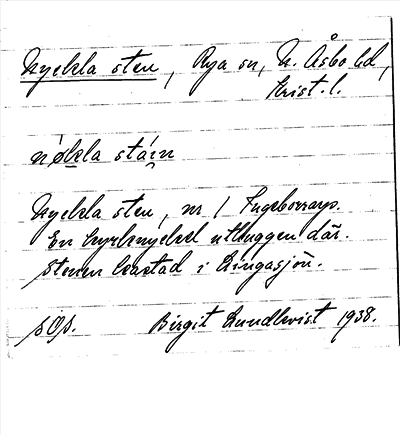 Nyckla sten, Rya sn, N. Åsbo hd,
Krist. l.
nøkla stáin
Nyckla sten, nr 1 Ingeborrarp.
En kyrknyckel uthuggen där.
Stenen kastad i Lingasjön.
sOs. Birgit Lundkvist 1938.